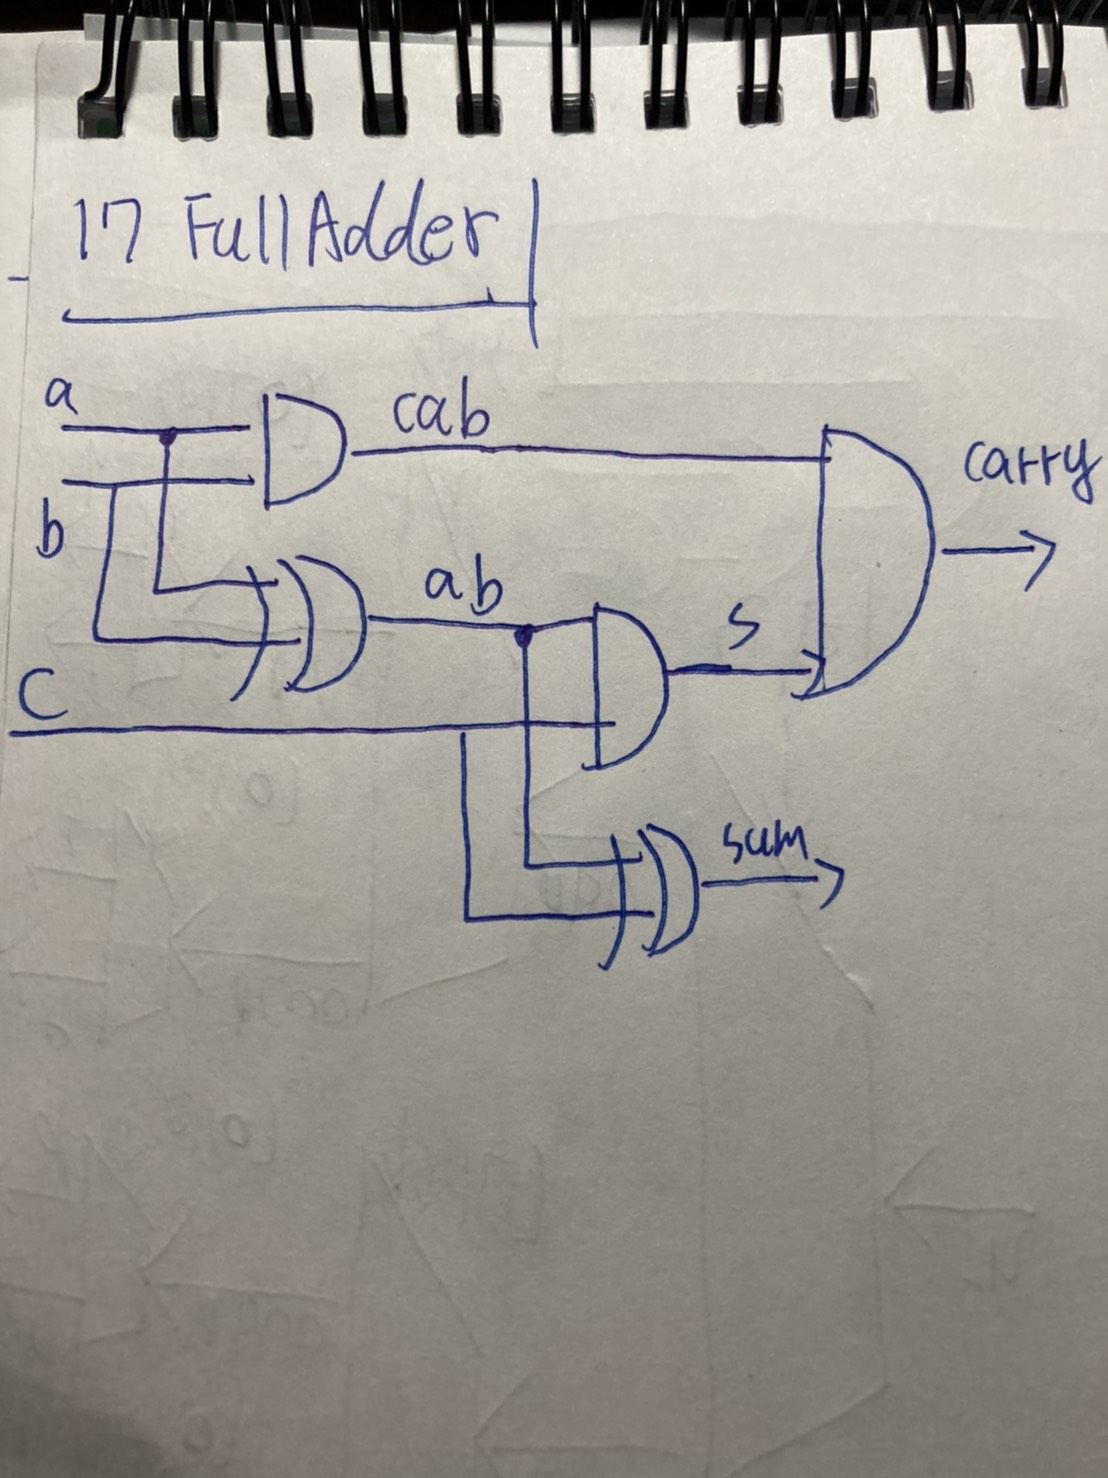 17 FullAdder
a
cab
carry
b
ab
s
C
sum